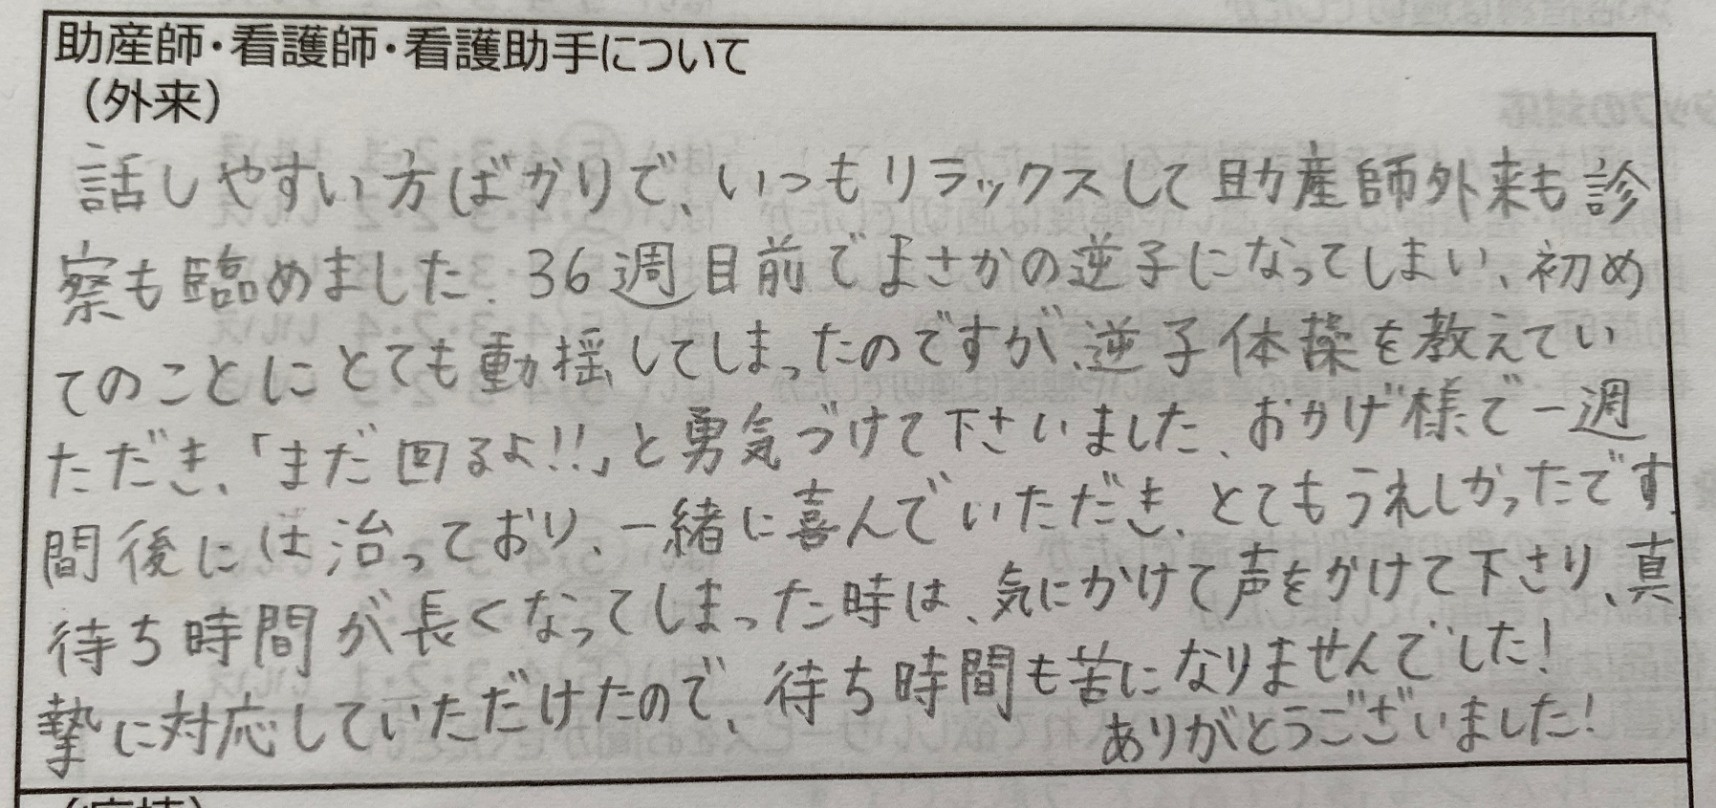 助産師・看護師・看護助手について
（外来）
話しやすい方ばかりで、いつもリラックスして助産師外来も診
察も臨めました。36週目前でまさかの逆子になってしまい、初め
てのことにとても動揺してしまったのですが、逆子体操を教えてい
ただき、「まだ回るよ!!」と勇気づけて下さいました。おかげ様で一週
間後には治っており、一緒に喜んでいただき、とてもうれしかったです。
待ち時間が長くなってしまった時は、気にかけて声をかけて下さり、真
摯に対応していただけたので、待ち時間も苦になりませんでした！
ありがとうございました！